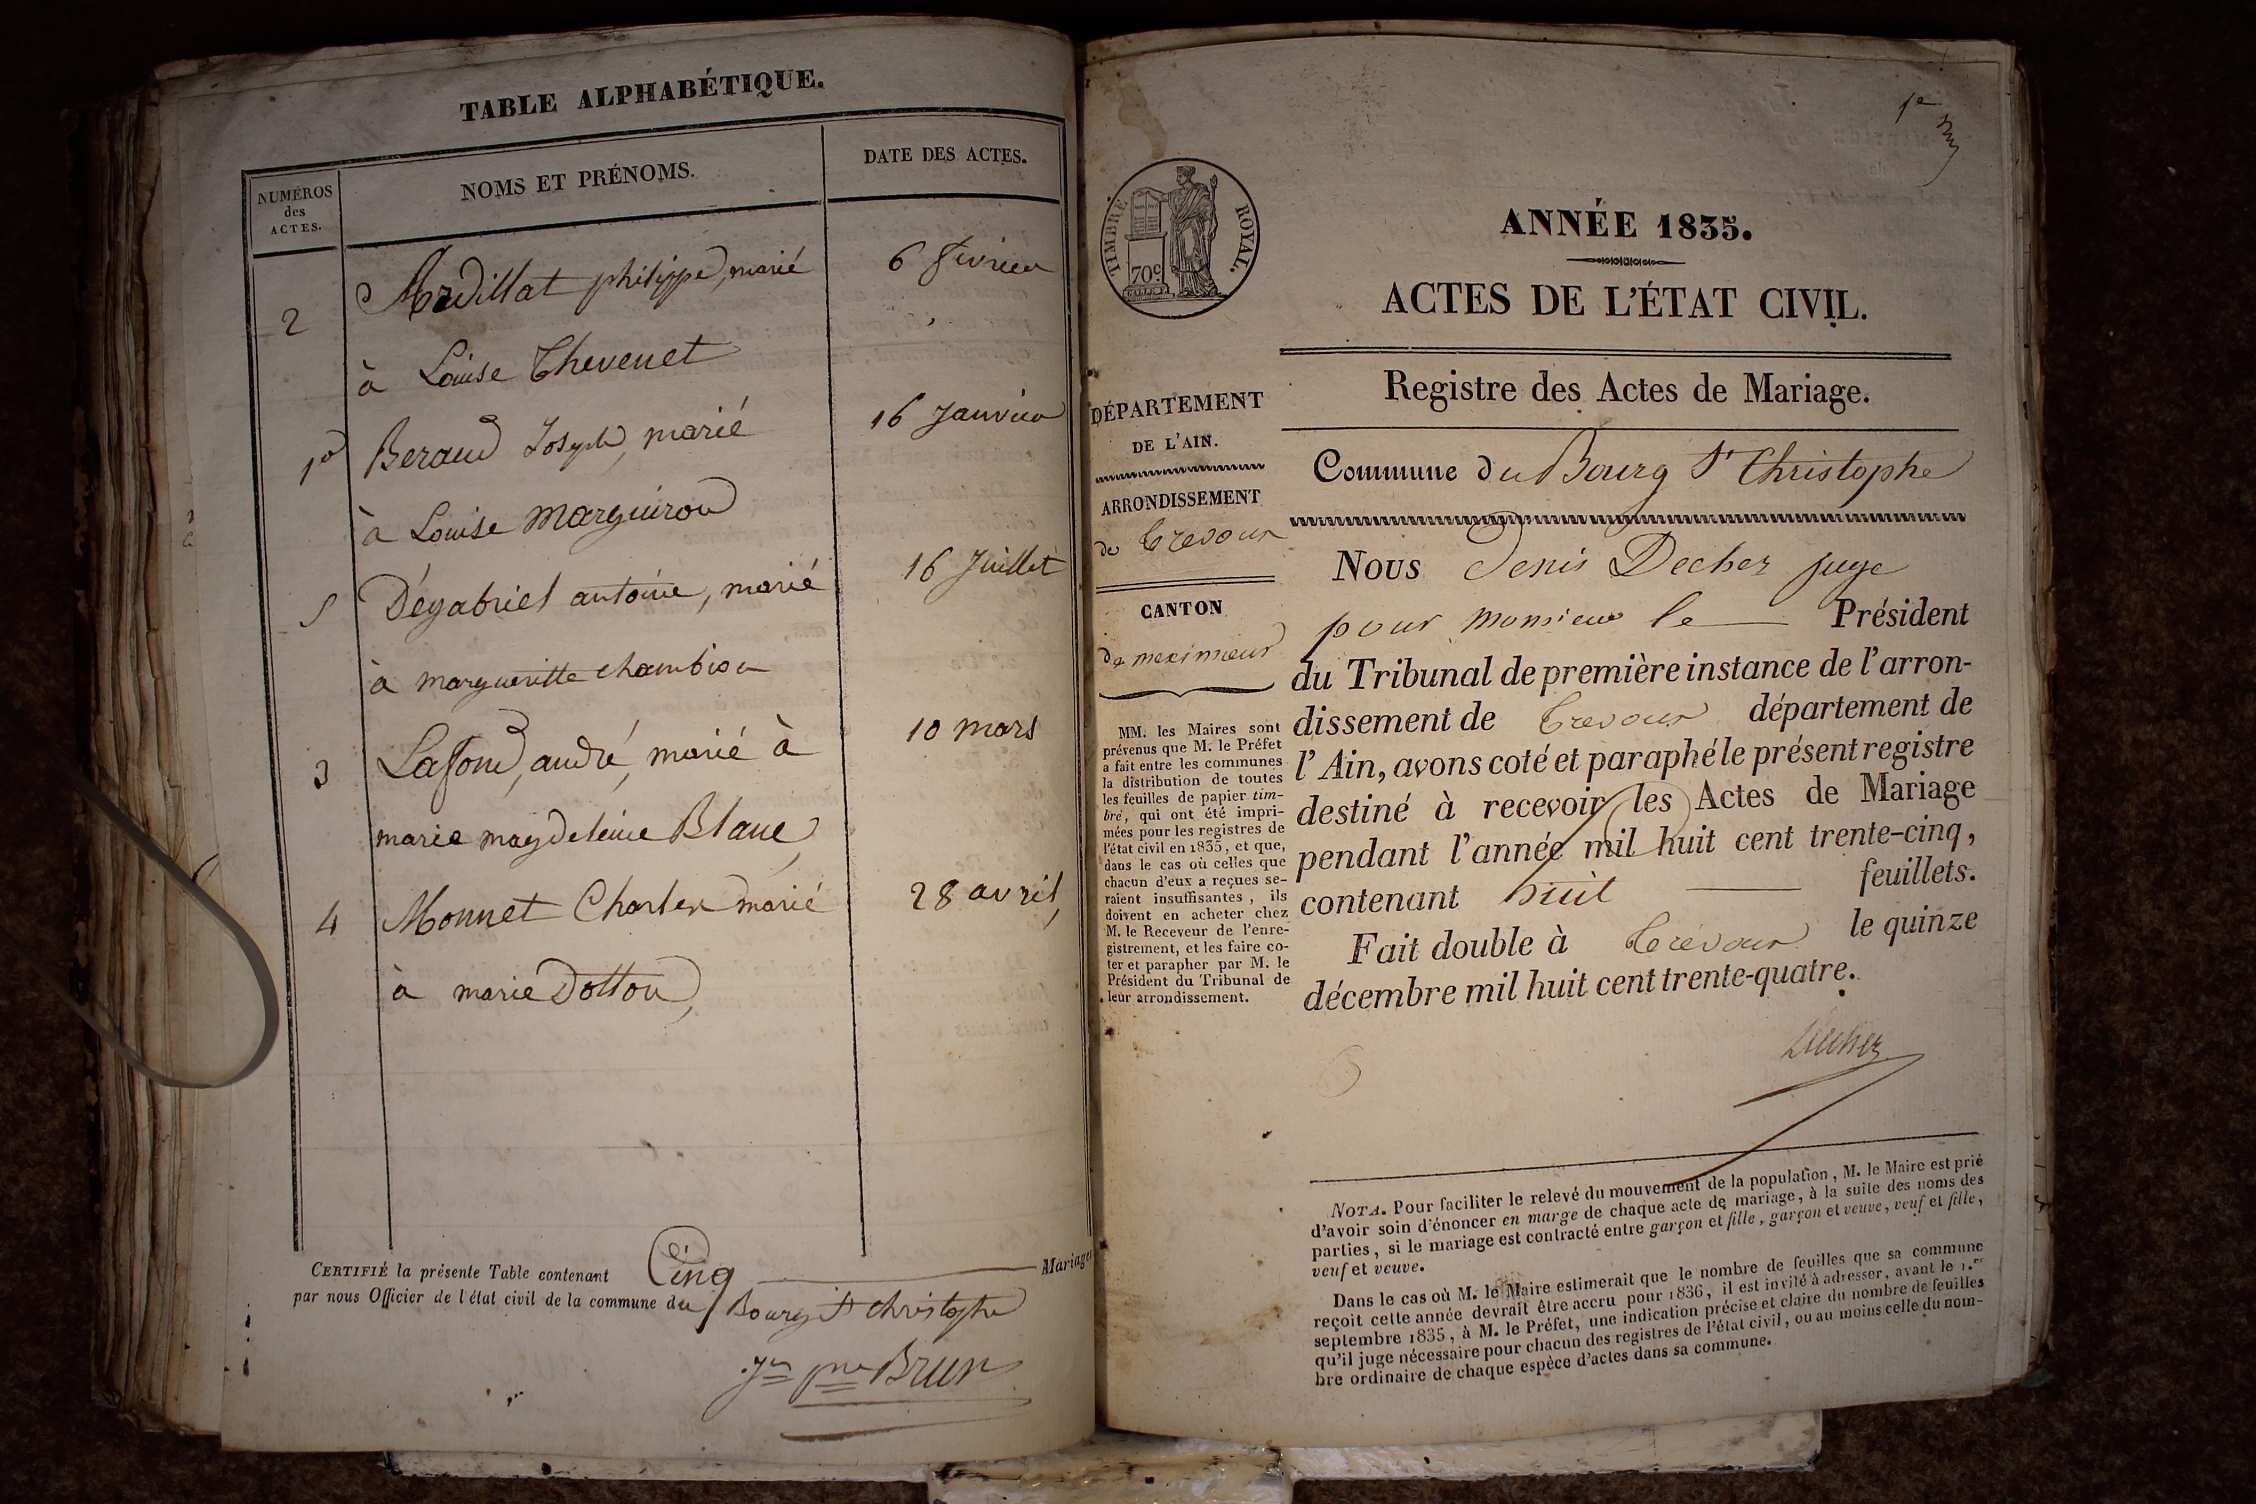 TABLE ALPHABÉTIQUE.
NUMÉROS
des
ACTES.
NOMS ET PRÉNOMS.
DATE DES ACTES.
2 Ardillat philippe, marié 6 février
à Louise Thevenet
1er Beraud Joseph, marié 16 Janvier
à Louise Marguiron
5 Dégabriel antoine, marié 16 Juillet
à margueritte chambion
3 Lafond, andré, marié à 10 mars
marie magdeleine Blanc,
4 Monnet Charles marié 28 avril,
à marie Dotton,
CERTIFIÉ la présente Table contenant Cinq Mariages
par nous Officier de l'état civil de la commune du Bourg St christophe
Jn pre Brun
1er
TIMBRE ROYAL.
70c
ANNÉE 1835.
ACTES DE L'ÉTAT CIVIL.
Registre des Actes de Mariage.
Commune du Bourg St Christophe
DÉPARTEMENT
DE L'AIN.
ARRONDISSEMENT
de Trevoux
CANTON
de meximieux
MM. les Maires sont
prévenus que M. le Préfet
a fait entre les communes
la distribution de toutes
les feuilles de papier tim-
bré, qui ont été impri-
mées pour les registres de
l'état civil en 1835, et que,
dans le cas où celles que
chacun d'eux a reçues se-
raient insuffisantes, ils
doivent en acheter chez
M. le Receveur de l'enre-
gistrement, et les faire co-
ter et parapher par M. le
Président du Tribunal de
leur arrondissement.
NOUS Denis Decher juge
pour monsieur le Président
du Tribunal de première instance de l'arron-
dissement de Trevoux département de
l'Ain, avons coté et paraphé le présent registre
destiné à recevoir les Actes de Mariage
pendant l'année mil huit cent trente-cinq,
contenant huit feuillets.
Fait double à Trévoux le quinze
décembre mil huit cent trente-quatre.
Decher
NOTA. Pour faciliter le relevé du mouvement de la population, M. le Maire est prié
d'avoir soin d'énoncer en marge de chaque acte de mariage, à la suite des noms des
parties, si le mariage est contracté entre garçon et fille, garçon et veuve, veuf et fille,
veuf et veuve.
Dans le cas où M. le Maire estimerait que le nombre de feuilles que sa commune
reçoit cette année devrait être accru pour 1836, il est invité à adresser, avant le 1.er
septembre 1835, à M. le Préfet, une indication précise et claire du nombre de feuilles
qu'il juge nécessaire pour chacun des registres de l'état civil, ou au moins celle du nom-
bre ordinaire de chaque espèce d'actes dans sa commune.